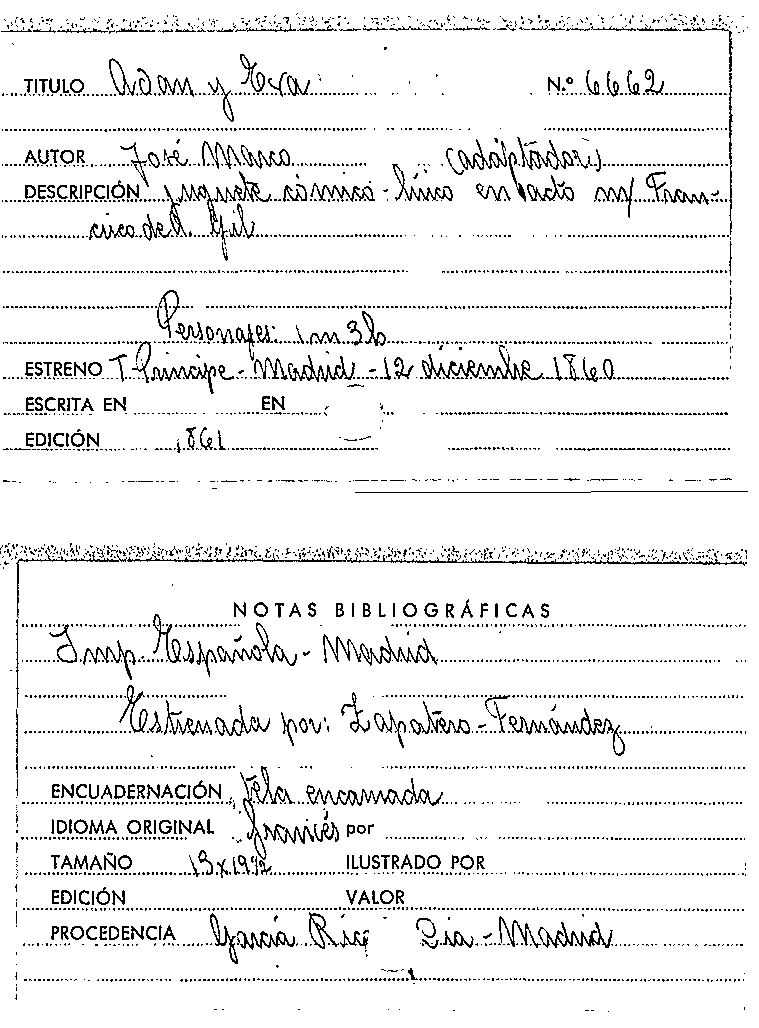 TITULO Adan y Eva N.º 6662
AUTOR José Marco (adaptador)
DESCRIPCIÓN juguete cómico-lírico en 1 acto m/ Fran-
cisco de A. Gil
Personajes: 1 m 3 h
ESTRENO T. Príncipe - Madrid - 12 diciembre 1860
ESCRITA EN EN
EDICIÓN 1861
NOTAS BIBLIOGRÁFICAS
Imp. Española - Madrid
Estrenada por: Zapatero - Fernández
ENCUADERNACIÓN tela encarnada
IDIOMA ORIGINAL francés por
TAMAÑO 13 x 19 1/2 ILUSTRADO POR
EDICIÓN VALOR
PROCEDENCIA García Rico Cia - Madrid